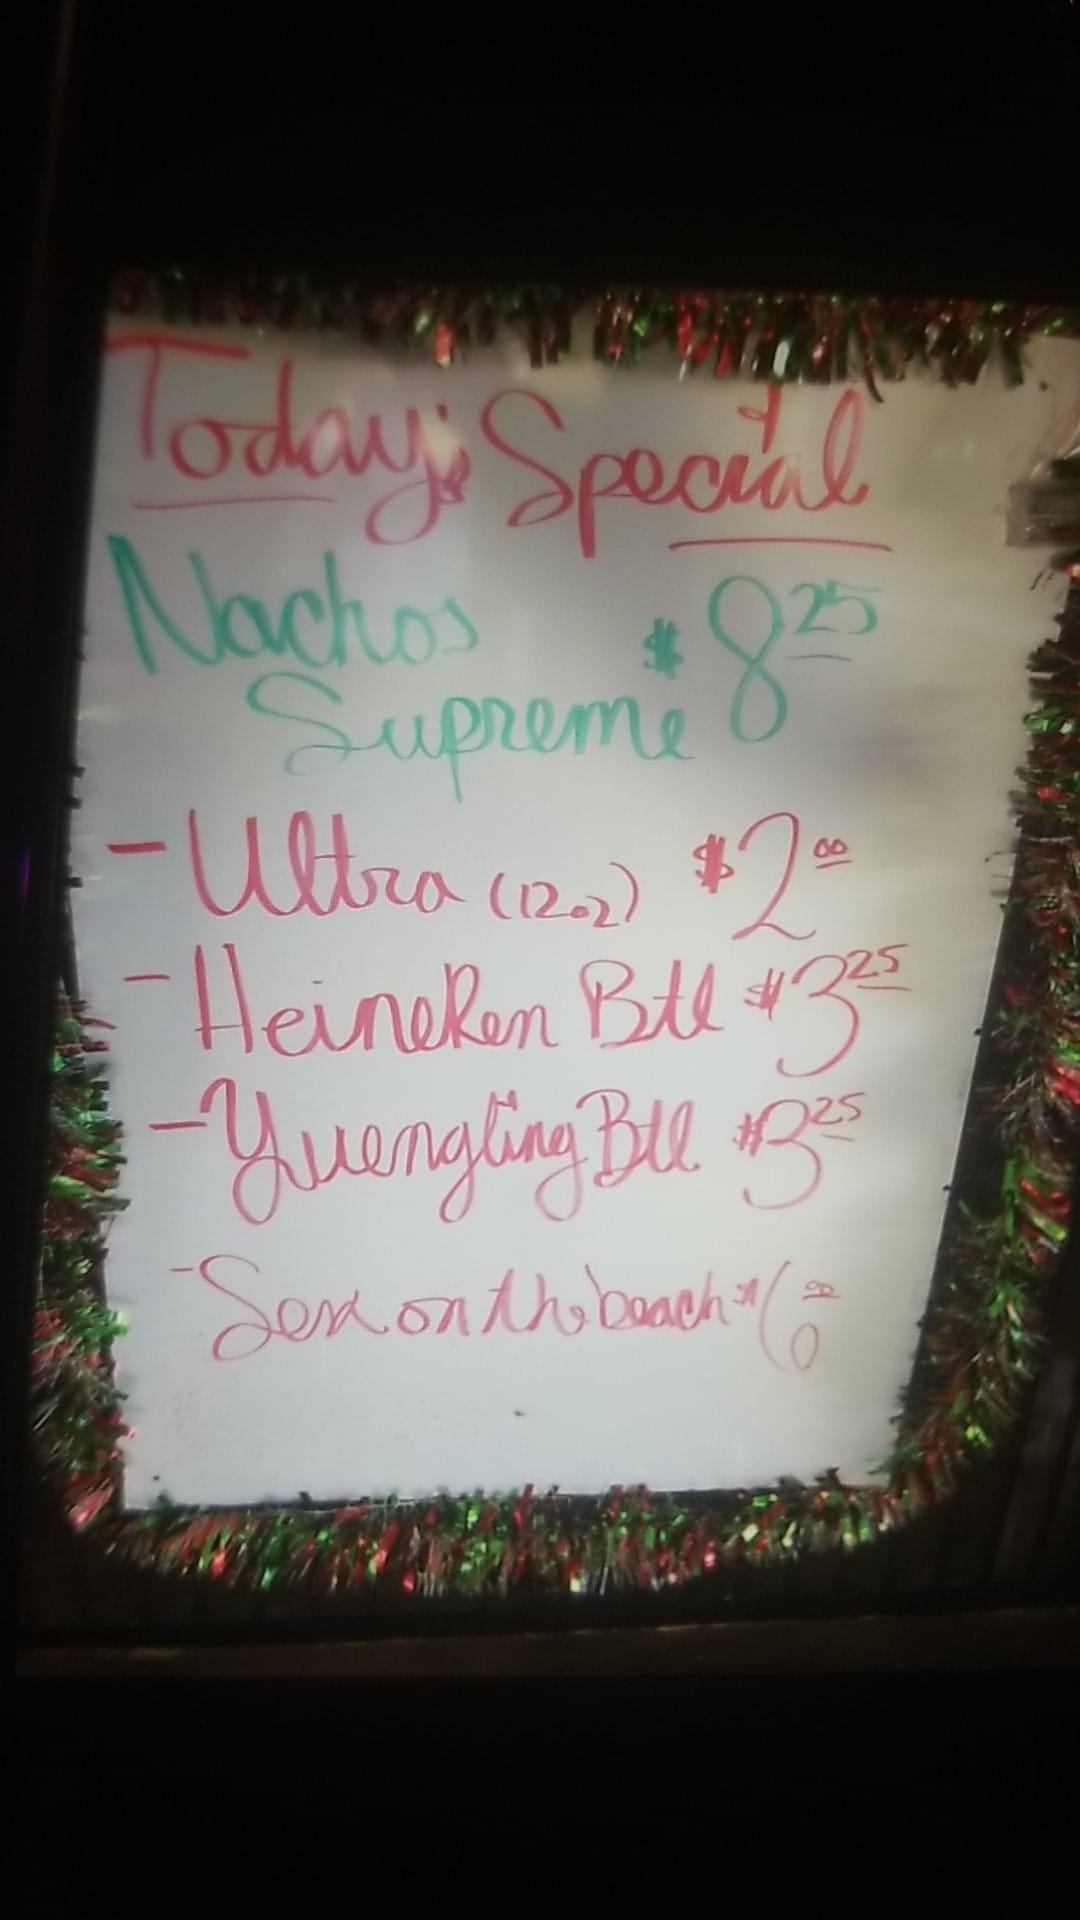 Today's Special
Nachos $8.25
Supreme
- Ultra (12oz) $2.00
- Heineken Btl $3.25
- Yuengling Btl $3.25
- Sex on the beach $6.00